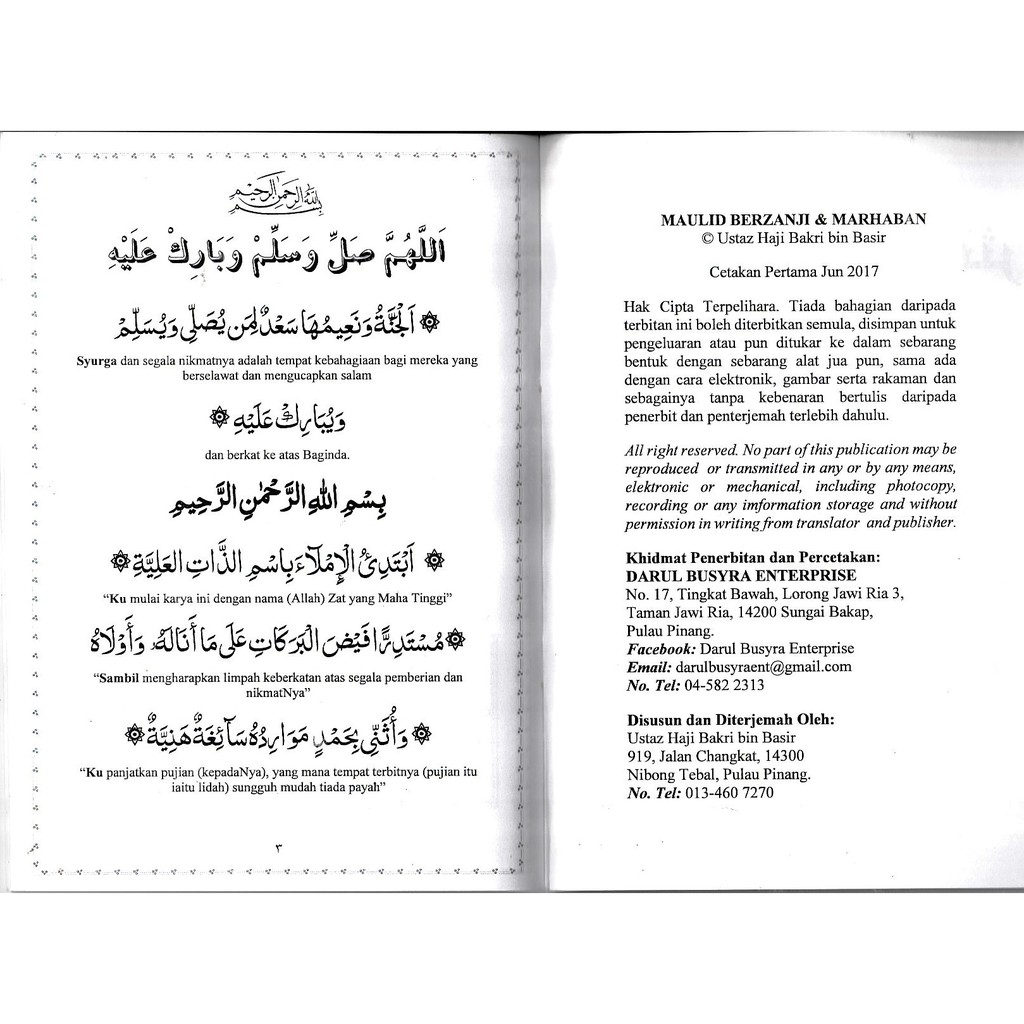 MAULID BERZANJI & MARHABAN
© Ustaz Haji Bakri bin Basir
Cetakan Pertama Jun 2017
Hak Cipta Terpelihara. Tiada bahagian daripada
terbitan ini boleh diterbitkan semula, disimpan untuk
pengeluaran atau pun ditukar ke dalam sebarang
bentuk dengan sebarang alat jua pun, sama ada
dengan cara elektronik, gambar serta rakaman dan
sebagainya tanpa kebenaran bertulis daripada
penerbit dan penterjemah terlebih dahulu.
All right reserved. No part of this publication may be
reproduced or transmitted in any or by any means,
elektronic or mechanical, including photocopy,
recording or any imformation storage and without
permission in writing from translator and publisher.
Khidmat Penerbitan dan Percetakan:
DARUL BUSYRA ENTERPRISE
No. 17, Tingkat Bawah, Lorong Jawi Ria 3,
Taman Jawi Ria, 14200 Sungai Bakap,
Pulau Pinang.
Facebook: Darul Busyra Enterprise
Email: darulbusyraent@gmail.com
No. Tel: 04-582 2313
Disusun dan Diterjemah Oleh:
Ustaz Haji Bakri bin Basir
919, Jalan Changkat, 14300
Nibong Tebal, Pulau Pinang.
No. Tel: 013-460 7270
بسم الله الرحمن الرحيم
اَللَّهُمَّ صَلِّ وَسَلِّمْ وَبَارِكْ عَلَيْهِ
۞ اَلْجَنَّةُ وَنَعِيمُهَا سَعْدٌ لِمَن يُصَلِّي وَيُسَلِّمْ
Syurga dan segala nikmatnya adalah tempat kebahagiaan bagi mereka yang
berselawat dan mengucapkan salam
وَيُبَارِكْ عَلَيْهِ ۞
dan berkat ke atas Baginda.
بِسْمِ اللهِ الرَّحْمٰنِ الرَّحِيمِ
۞ اَبْتَدِئُ الْإِمْلَآءَ بِاسْمِ الذَّاتِ العَلِيَّةِ ۞
“Ku mulai karya ini dengan nama (Allah) Zat yang Maha Tinggi”
۞ مُسْتَدِرًّا فَيْضَ الْبَرَكَاتِ عَلَى مَا أَنَالَهُ وَأَوْلَاهُ
“Sambil mengharapkan limpah keberkatan atas segala pemberian dan
nikmatNya”
۞ وَأُثَنِّي بِحَمْدٍ مَوَارِدُهُ سَآئِغَةٌ هَنِيَّةٌ ۞
“Ku panjatkan pujian (kepadaNya), yang mana tempat terbitnya (pujian itu
iaitu lidah) sungguh mudah tiada payah”
٣